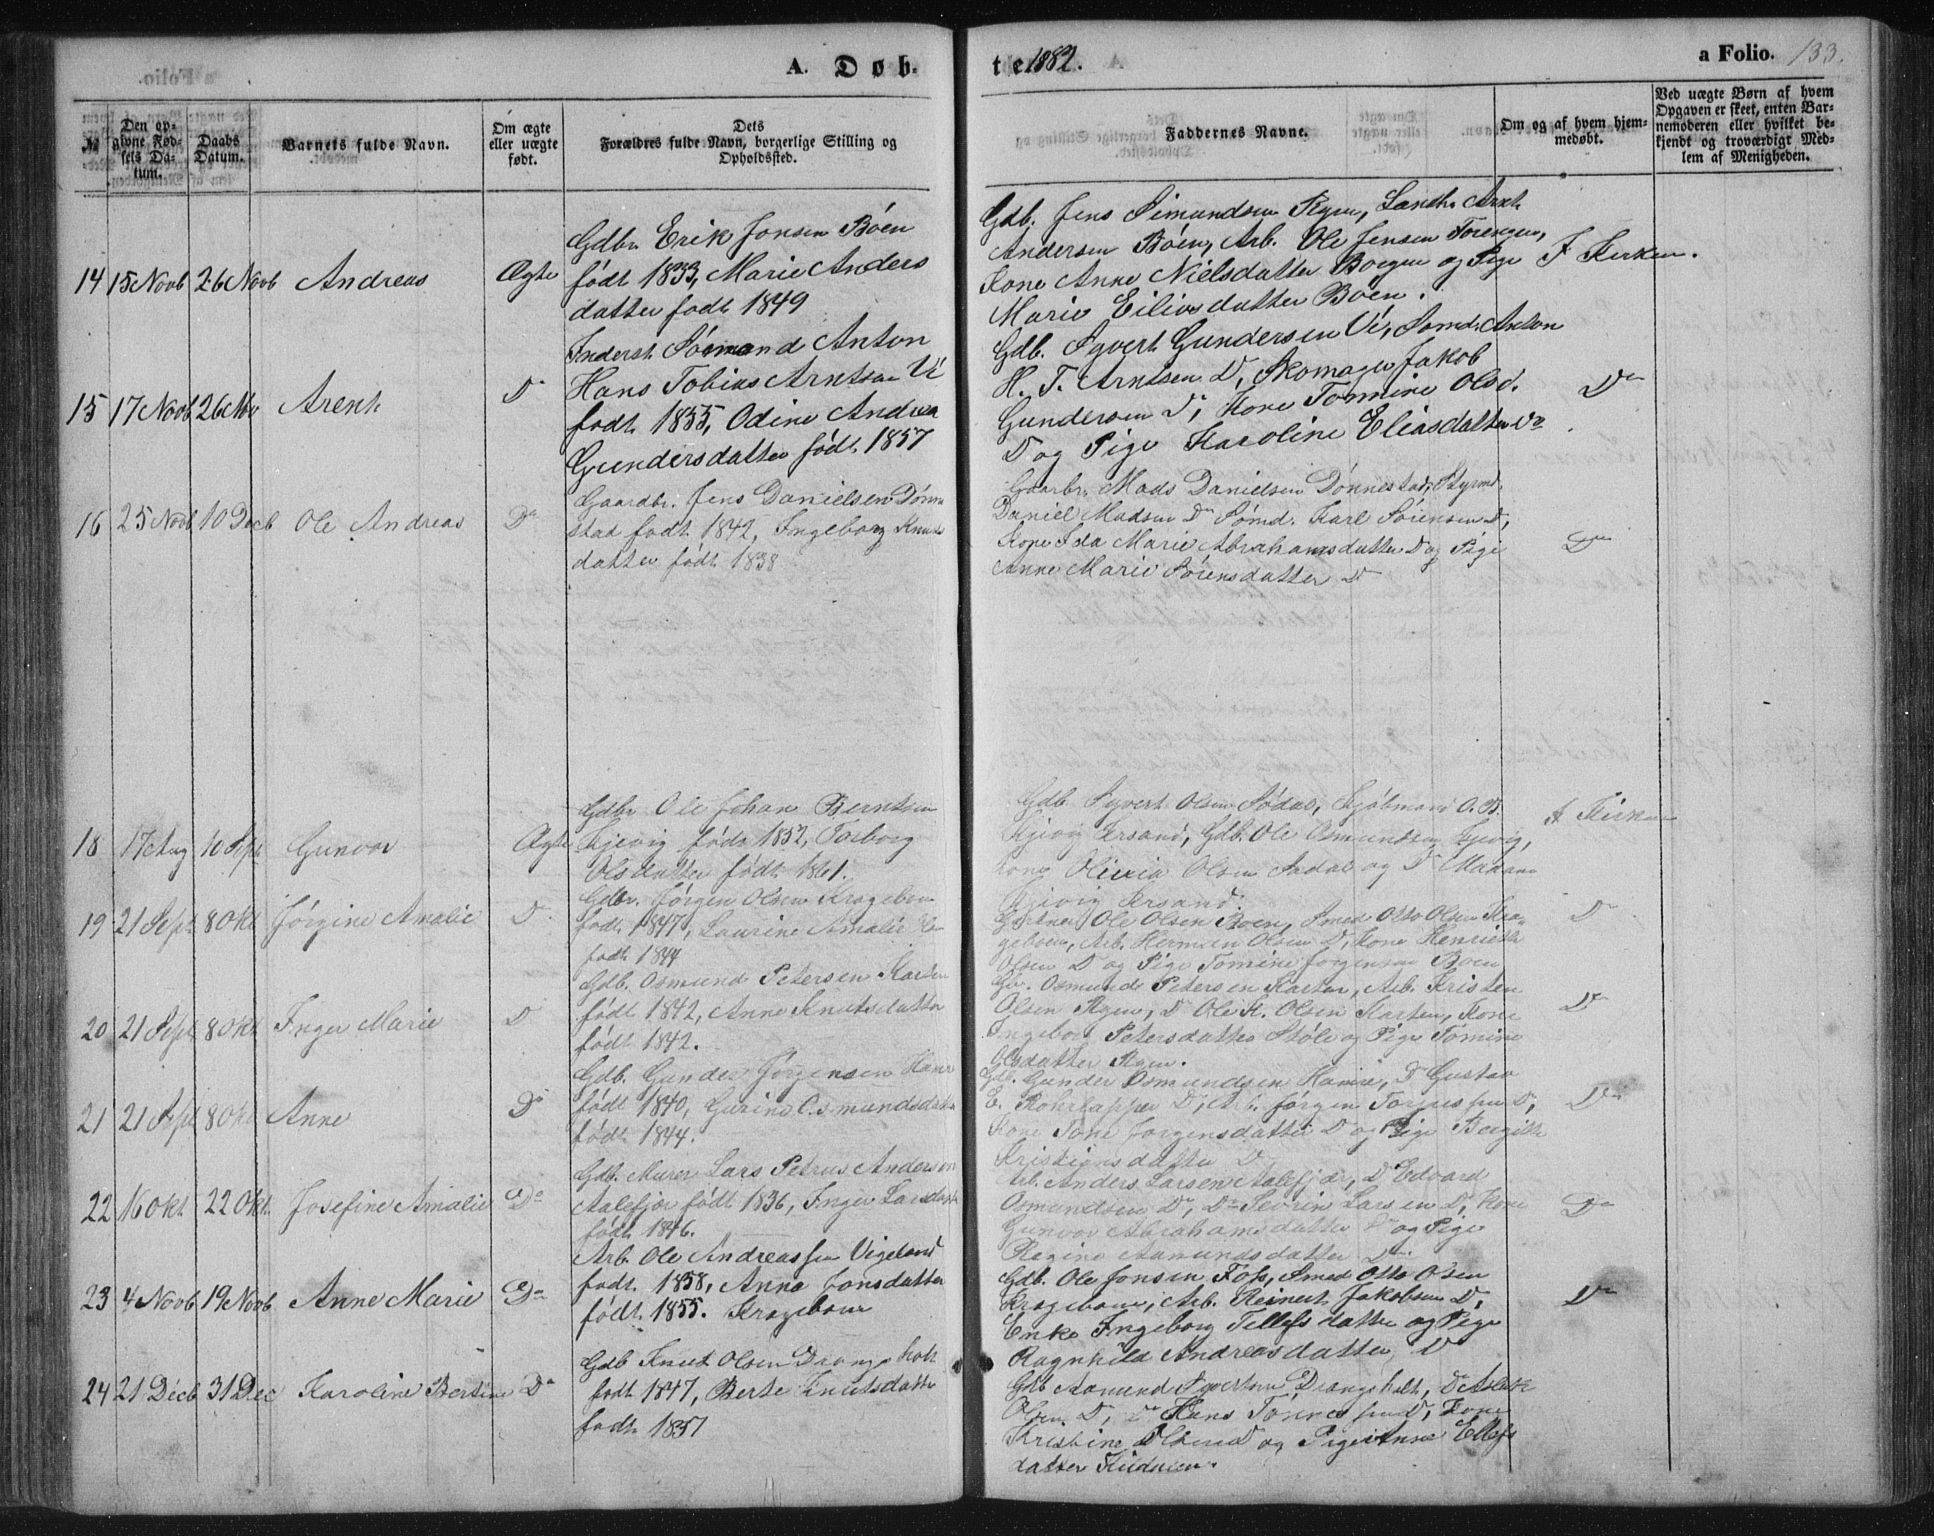 A. Døb-
te 1882.
a Folio. 133.
№
Den opgivne Fødsels Datum.
Daabs Datum.
Barnets fulde Navn.
Om ægte eller uægte født.
Dets Forældres fulde Navn, borgerlige Stilling og Opholdssted.
Faddernes Navne.
Om og af hvem hjemmedøbt.
Ved uægte Børn af hvem Opgaven er skeet, enten Barnemoderen eller hvilket bekjendt og troværdigt Medlem af Menigheden.
14 15 Novb 26 Novb Andreas Ægte
Gdbr Erik Jonsen Böen
födt 1833, Marie Anders
datter födt 1849
Gdb. Jens Simundsen
Andersen Böen, Arb. Ole Jensen
Kone Anne Nielsdatter Boegen og Pige
Marie Eilivsdatter Böen.
I Kirken.
15 17 Novb 26 Nov Arent Do
Inderst Sömand Anton
Hans Tobias Arntsen Ve
födt 1855, Odine Andrea
Gundersdatter födt 1857
Gdb. Syvert Gundersen Ve, Sömd. Anton
H. T. Arntsen Do, Skomager Jakob
Gundersen Do, Kone Tomine Olsd.
Do og Pige Karoline Eliasdatter Do
Do
16 25 Novb 10 Decb Ole Andreas Do
Gaardbr. Jens Danielsen Dönne
stad födt 1842, Ingeborg Knuds
datter födt 1838
Gaarbr. Mads Danielsen Dönnestad, Styrmd.
Daniel Madsen Do Sömd. Karl Sörensen Do,
Kone Ida Marie Abrahamsdatter Do og Pige
Anne Marie Sörensdatter Do
Do
18 17 Aug 10 Sept Gunvor Ægte
Gdbr Ole Johan Berntsen
Kjevig födt 1852, Torborg
Olsdatter födt 1861.
Gdb. Syvert Olsen Södal, Kjöbmand O. B.
Kjevig Krsand, Gdb. Ole Osmundsen Kjevig,
Kone Olivia Olsen Sødal og Do
Kjevig Krsand.
I Kirken
19 21 Sept 8 Okt Jörgine Amalie Do
Gdbr. Jörgen Olsen Krageboen
födt 1847, Laurine Amalie
födt 1844
Gartner Ole Olsen Boen, Smed Otto Olsen Kra-
geboen, Arb. Herman Olsen Do, Kone Henriette
Olsen Do og Pige Tomine Jorgensen Boen
Do
20 21 Sept 8 Okt Inger Marie Do
Gdb. Osmund Petersen Karten
födt 1842, Anne Knutsdatter
födt 1842.
Gb. Osmund Petersen Karten, Arb. Kristen
Olsen, Do Ole K. Olsen Karten, Kone
Ingeborg Petersdatter Stöle og Pige Tomine
Olsdatter
Do
21 21 Sept 8 Okt Anne Do
Gdb. Gunder Jörgensen
födt 1840, Gurine Osmundsdatter
födt 1844.
Gdb. Gunder Osmundsen, Do Gustav
E. Do, Arb. Jörgen Torjussen Do,
Kone Tone Jorgensdatter Do og Pige Bergitte
Kristiansdatter Do
Do
22 16 Okt 22 Okt Josefine Amalie Do
Gdb. Murer Lars Petrus Andersen
Aalefjær födt 1836, Inger Larsdatter
födt 1846.
Arb. Anders Larsen Aalefjær, Do Edvard
Osmundsen Do, Do Severin Larsen Do, Kone
Gunvor Abrahamsdatter Do og Pige
Regine Aamundsdatter Do.
Do
23 4 Novb 19 Novb Anne Marie Do
Arb. Ole Andreassen Vigeland
födt. 1858, Anne Jonsdatter
födt. 1855. Krageboen
Gdb. Ole Jonsen Foss, Smed Otto Olsen
Krageboen, Arb. Reinert Jakobsen Do,
Enke Ingeborg Tellefsdatter og Pige
Ragnhild Andreasdatter, Do
Do
24 21 Decb 31 Dec Karoline Bertine Do
Gdb Knut Olsen Drangsholt
födt 1847, Berte Knutsdatter
födt 1857
Gdb Aamund Syvertsen Drangsholt, Do Aslak
Olsen Do, Do Hans Tönnessen Do, Kone
Kristine Olsen Do og Pige Anne Ellefs
datter